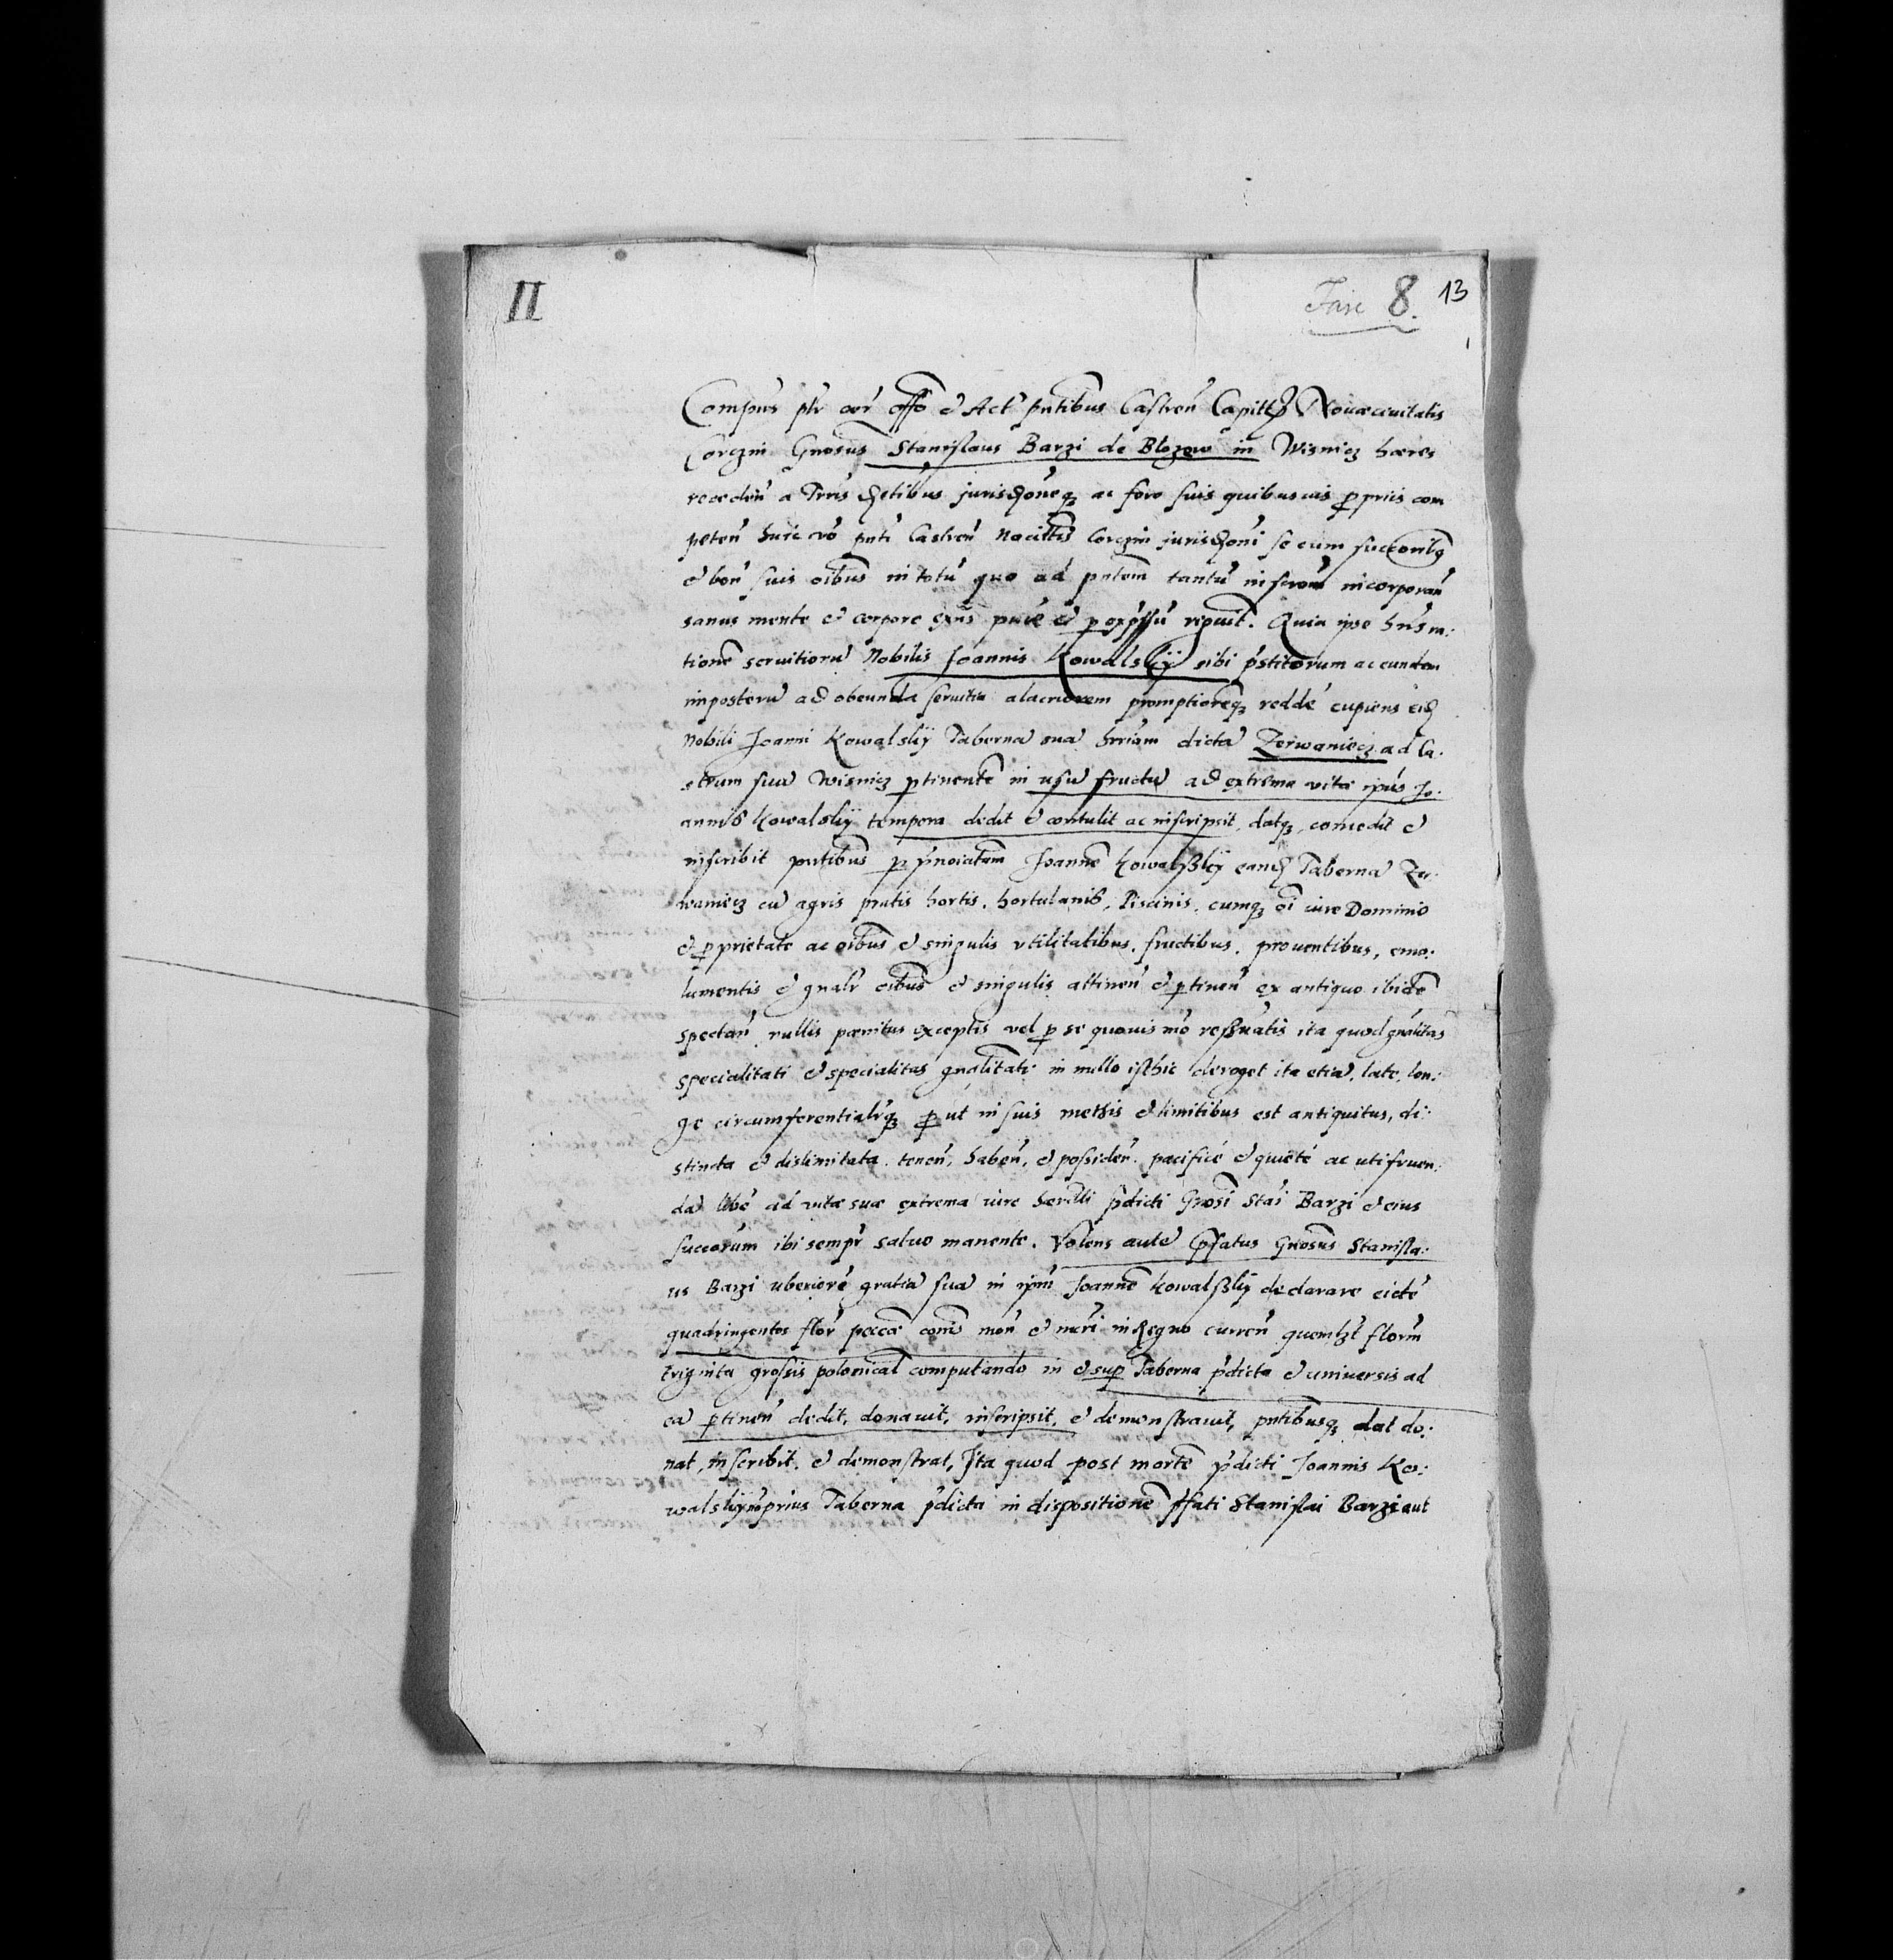 II
Fasc 8. 13
Compns plr cor offo et Act pntibus Castren Capitt Novaecivitatis
Corczin Gnosus Stanislaus Barzi de Blozow in Wisnicz haeres
receden a Trris Dstibus jurisdoneq ac foro suis quibusvis propriis com
peten huic vo pnti Castren Nocittis Corczin jurisdoni se cum succoribq
et bon suis oibus in totu quo ad pntem tantu inscrom incorporan
sanus mente et corpore exns pnie et p expssu recognovit. Quia ipse hns ra:
tione servitioru Nobilis Joannis Kowalskij sibi pstitorum ac eundem
imposteru ad obeunda servitia alacriorem promptioreq redde cupiens eid
Nobili Joanni Kowalskij Taberna sua hrriam dicta Zerwaniecz ad Ca:
strum suu Wisnicz ptinente in usu fructu ad extrema vitae ipius Jo:
annis Kowalskij tempora dedit et contulit ac inscripsit, datq, concedit et
inscribit pntibus p pnoiatum Joanne Kowalskij eand Taberna Zer:
waniecz cu agris pratis hortis, hortulanis, Piscinis, cumq oi iure Dominio
et pprietate ac oibus et singulis utilitatibus, fructibus, proventibus, emo:
lumentis et gnalr oibus et singulis attinen et ptinen ex antiquo ibide
spectan nullis paenitus exceptis vel p se quovis mo reservatis ita quod gnalitas
specialitati et specialitas gnalitati in nullo isthic deroget ita etia, late, lon:
ge circumferentialrq prout in suis methis et limitibus est antiquitus, di:
stincta et dislimitata tenen, haben, et possiden pacifice et quiete ac utifruen:
da libe ad vitae suae extrema iure heredli pdicti Gnosi Stai Barzi et eius
succorum ibi sempr salvo manente. Volens aute pfatus Gnosus Stanisla:
us Barzi uberiore gratia sua in ipm Joanne Kowalskij declarare eide
quadringentos flor pecca comi mon et nuri in Regno curren quemlzt florm
triginta grossis polonical computando in et sup Taberna pdicta et universis ad
ea ptinen dedit, donavit, inscripsit, et demonstravit, pntibusq dat do:
nat, inscribit, et demonstrat, Ita quod post morte pdicti Joannis Ko:
walskij no prius Taberna pdicta in dispositione pfati Stanislai Barzi aut